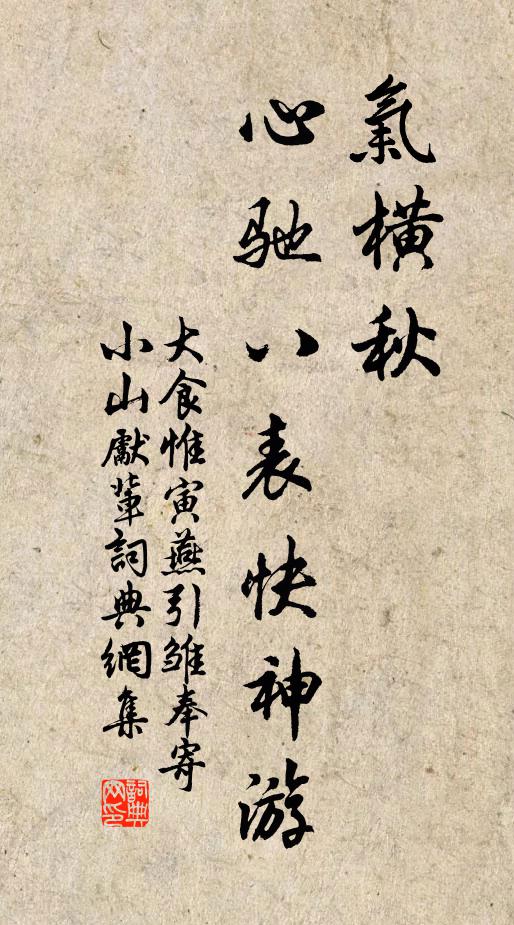 氣橫秋
心驰八表快神游
大食惟寅燕引雏奉寄
小山獻辈詞典網集
詞典网印